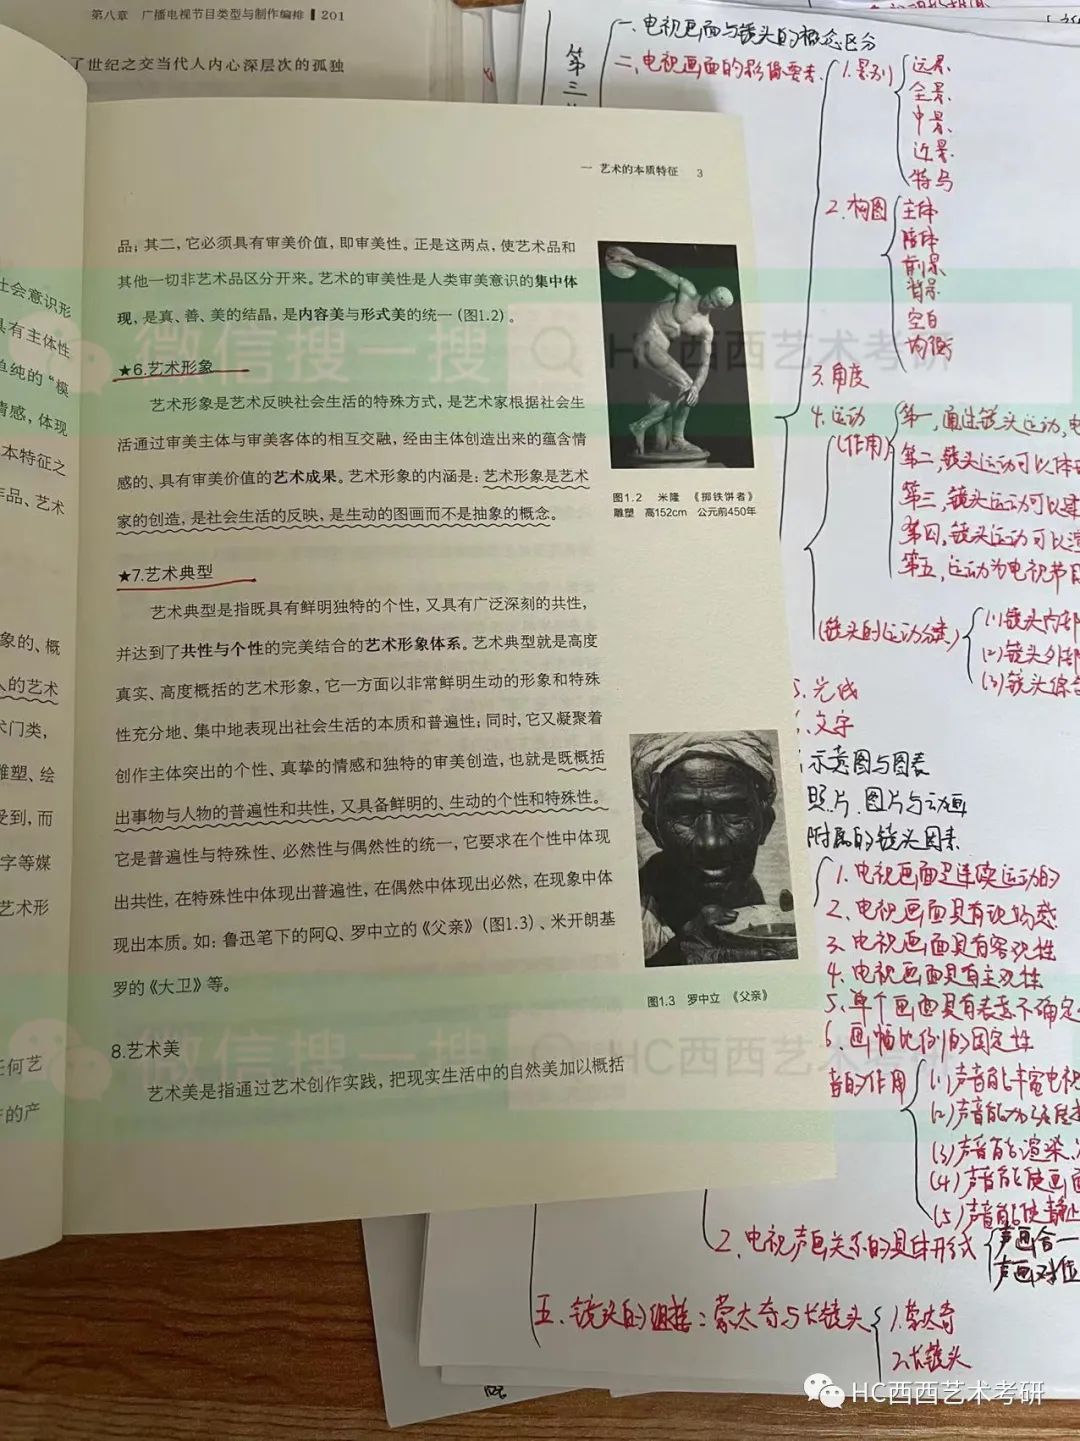 第八章 广播电视节目类型与制作编排 201
了世纪之交当代人内心深层次的孤独
一 艺术的本质特征 3
品；其二，它必须具有审美价值，即审美性。正是这两点，使艺术品和
其他一切非艺术品区分开来。艺术的审美性是人类审美意识的集中体
现，是真、善、美的结晶，是内容美与形式美的统一（图1.2）。
★6.艺术形象
艺术形象是艺术反映社会生活的特殊方式，是艺术家根据社会生
活通过审美主体与审美客体的相互交融，经由主体创造出来的蕴含情
感的、具有审美价值的艺术成果。艺术形象的内涵是：艺术形象是艺术
家的创造，是社会生活的反映，是生动的图画而不是抽象的概念。
★7.艺术典型
艺术典型是指既具有鲜明独特的个性，又具有广泛深刻的共性，
并达到了共性与个性的完美结合的艺术形象体系。艺术典型就是高度
真实、高度概括的艺术形象，它一方面以非常鲜明生动的形象和特殊
性充分地、集中地表现出社会生活的本质和普遍性；同时，它又凝聚着
创作主体突出的个性、真挚的情感和独特的审美创造，也就是既概括
出事物与人物的普遍性和共性，又具备鲜明的、生动的个性和特殊性。
它是普遍性与特殊性、必然性与偶然性的统一，它要求在个性中体现
出共性，在特殊性中体现出普遍性，在偶然中体现出必然，在现象中体
现出本质。如：鲁迅笔下的阿Q、罗中立的《父亲》（图1.3）、米开朗基
罗的《大卫》等。
8.艺术美
艺术美是指通过艺术创作实践，把现实生活中的自然美加以概括
图1.2 米隆 《掷铁饼者》
雕塑 高152cm 公元前450年
图1.3 罗中立 《父亲》
社会意识形
具有主体性
单纯的“模
情感，体现
本特征之
作品、艺术
象的、概
人的艺术
术门类，
雕塑、绘
受到，而
字等媒
艺术形
任何艺
的产
第三
一、电视画面与镜头的概念区分
二、电视画面的影像要素
1.景别
远景
全景
中景
近景
特写
2.构图
主体
陪体
前景
背景
空白
均衡
3.角度
4.运动
(作用)
第一，通过镜头运动，电
第二，镜头运动可以体
第三，镜头运动可以
第四，镜头运动可以
第五，运动为电视节目
(镜头的运动分类)
(1)镜头内部
(2)镜头外部
(3)镜头综合
5.光线
文字
示意图与图表
照片、图片与动画
附属的镜头因素
1.电视画面是连续运动的
2.电视画面具有现场感
3.电视画面具有客观性
4.电视画面具有主观性
5.单个画面具有表意不确定
6.画幅比例的固定性
音的作用
(1)声音能丰富电视
(2)声音能加强
(3)声音能渲染
(4)声音能使画面
(5)声音能使静止
2.电视声画关系的具体形式
声画合一
声画对位
五、镜头的组接：蒙太奇与长镜头
1.蒙太奇
2.长镜头
微信搜一搜 HC西西艺术考研
微信搜一搜 HC西西艺术考研
HC西西艺术考研